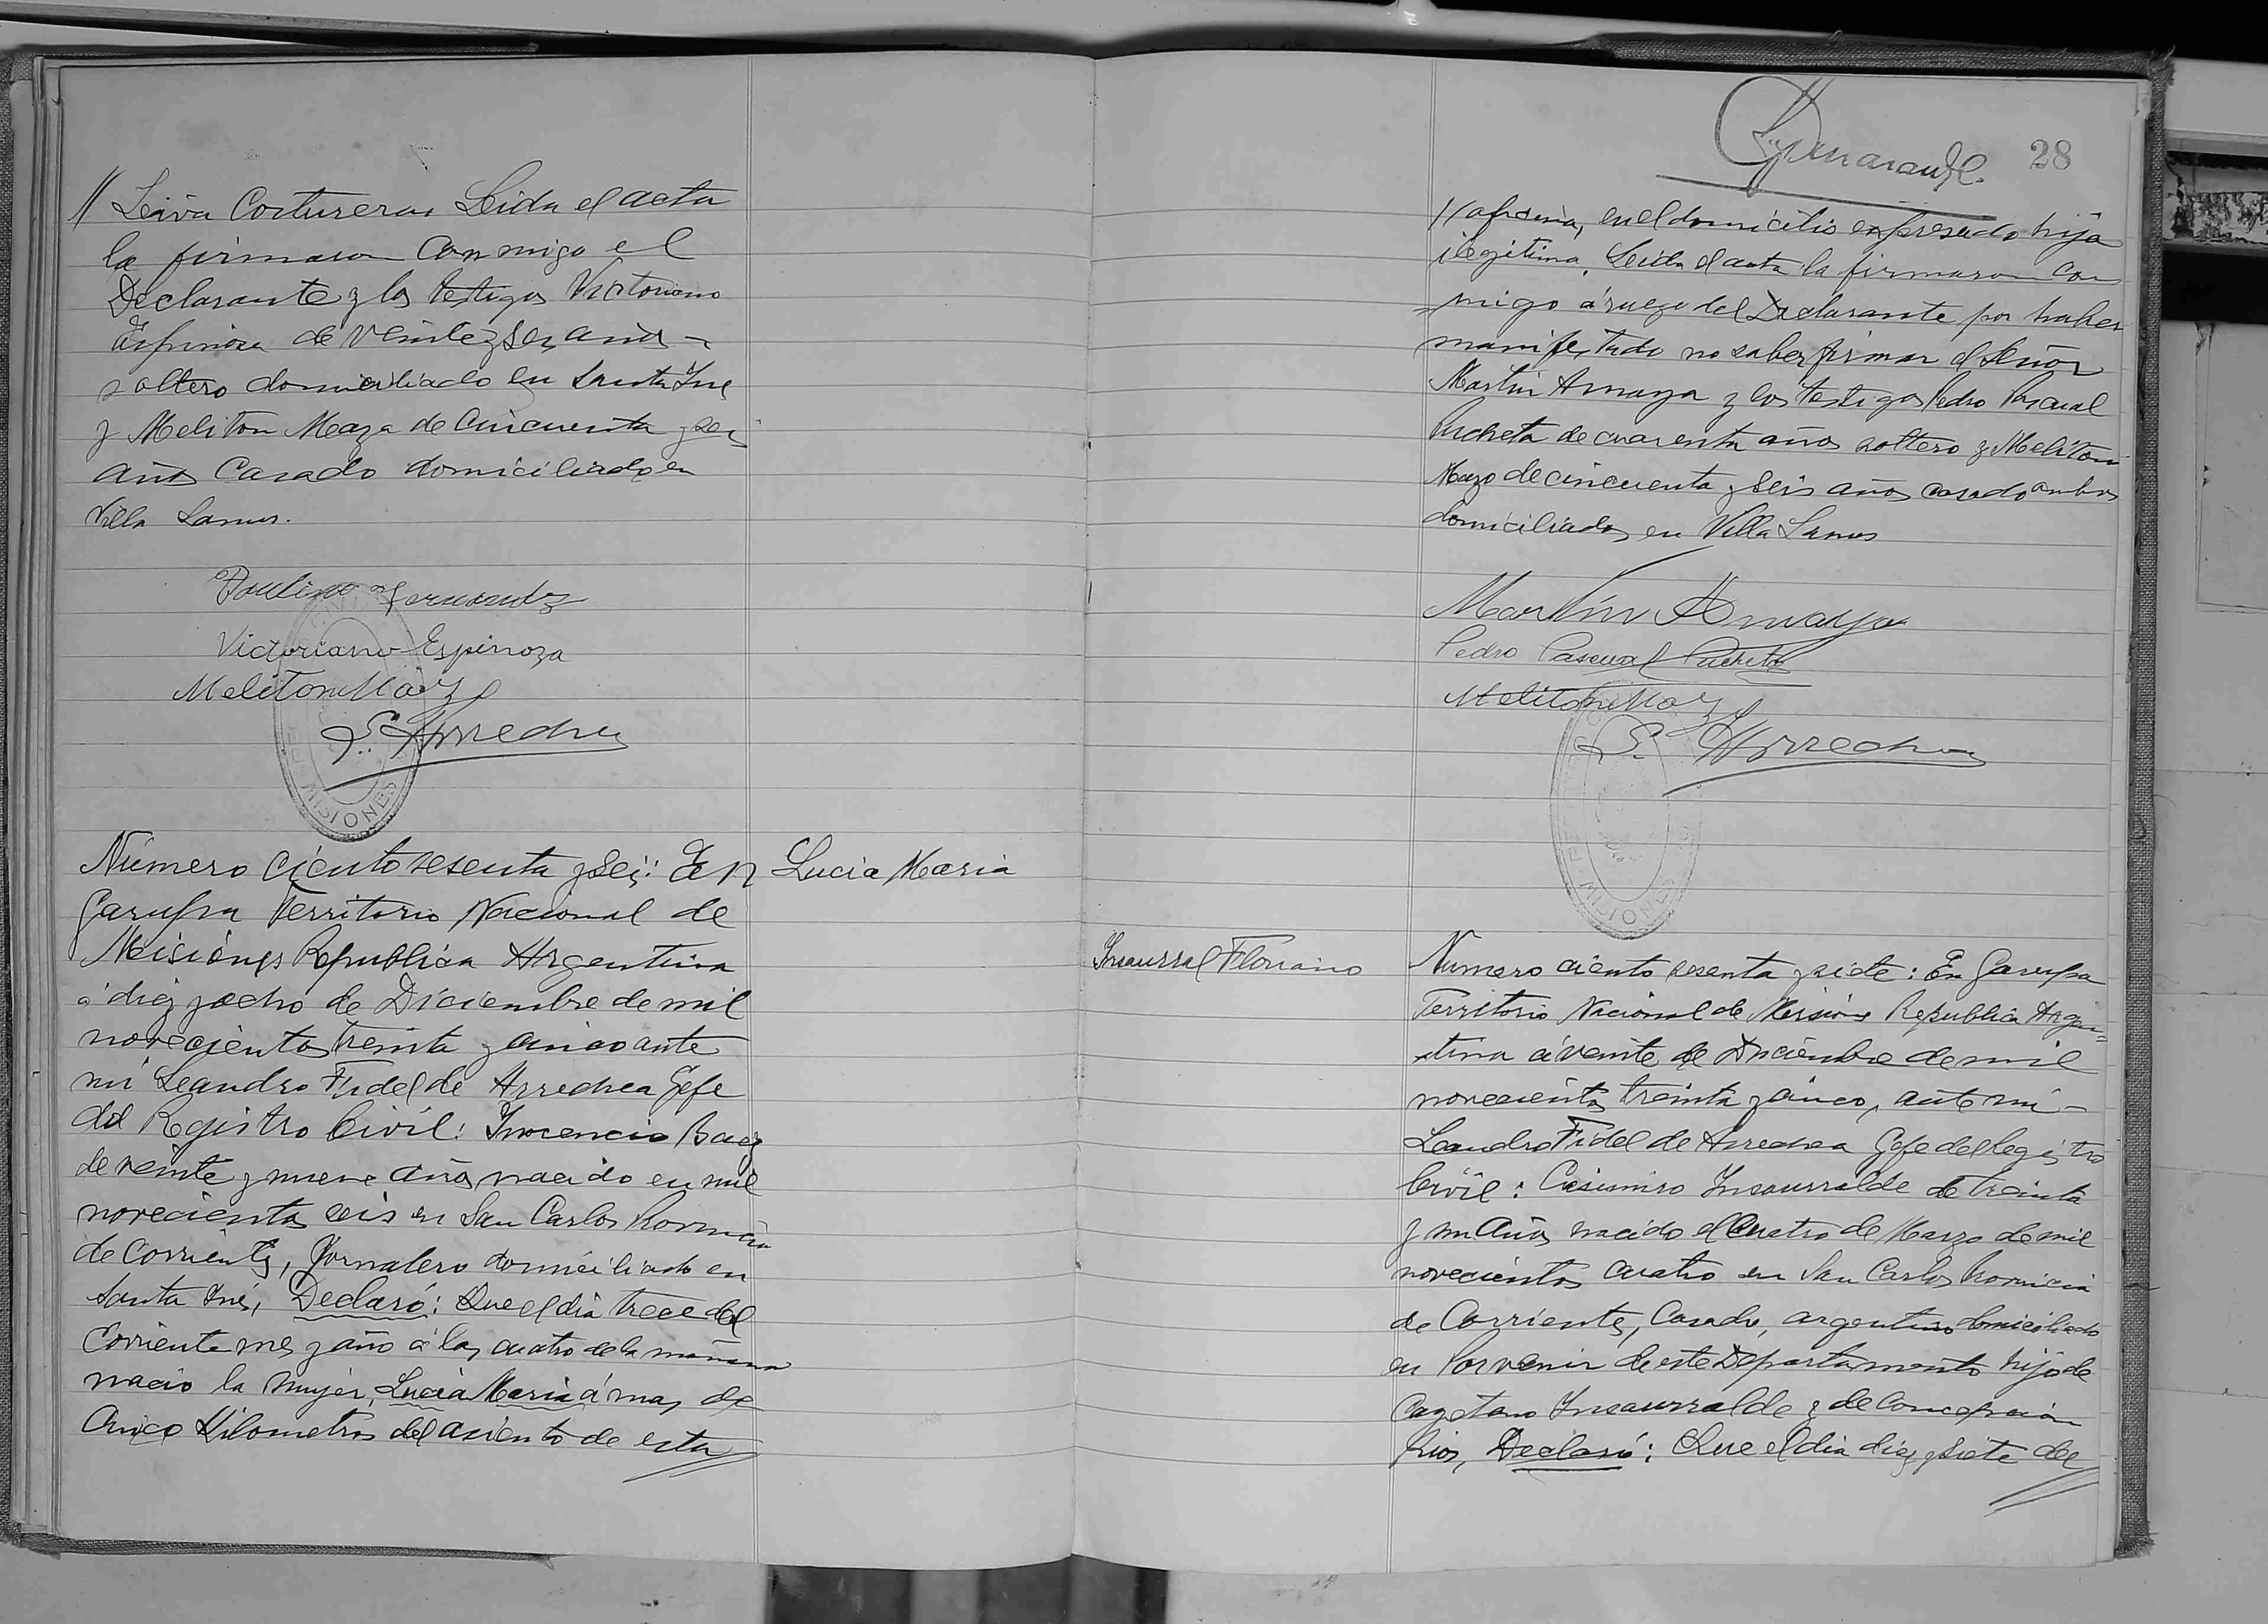 // Leiva Costureras Leida el acta
la firmaron conmigo el
Declarante y los testigos Victoriano
Espinosa de veinte y seis años -
soltero domiciliado en Santa Ine
y Meliton Meza de cincuenta y seis
años Casado domiciliado en
Villa Lanus.
Paulino Fernandez
Victoriano Espinoza
Meliton Maiz
L. F. Arrechea
MISIONES
Número ciento sesenta y seis: En
Garupa Territorio Nacional de
Misiones Republica Argentina
á diez y ocho de Diciembre de mil
novecientos treinta y cinco ante
mi Leandro Fidel de Arrechea Gefe
del Registro Civil: Inocencio Baez
de veinte y nueve años nacido en mil
novecientos seis en San Carlos Provincia
de Corrientes, Jornalero domiciliado en
Santa Inés, Declaró: Que el dia trece del
Corriente mes y año á las cuatro de la mañana
nacio la mujer, Lucia Maria á mas de
Cinco Kilometros del asiento de esta
Lucia Maria
28
// oficina, en el domicilio expresado hija
ilegitima. Leida el acta la firmaron con
migo á ruego del Declarante por haber
manifestado no saber firmar el Señor
Martin Amaya y los testigos Pedro Pascual
Pucheta de cuarenta años soltero y Meliton
Mazo de cincuenta y seis años casado ambos
domiciliados en Villa Lanus
Martín Amaya
Pedro Pascual Pucheta
Meliton Maiz
L. F. Arrechea
MISIONES
Insaurral Floriano
Numero ciento sesenta y siete: En Garupa
Territorio Nacional de Misiones Republica Argen=
tina á veinte de Diciembre de mil
novecientos treinta y cinco, ante mi -
Leandro Fidel de Arrechea Gefe del Registro
Civil: Casimiro Insaurralde de treinta
y un años nacido el Cuatro de Marzo de mil
novecientos cuatro en San Carlos Provincia
de Corrientes, Casado, argentino domiciliado
en Porvenir de este Departamento hijo de
Cayetano Insaurralde y de Concepcion
Rios, Declaró: Que el dia diez y siete del